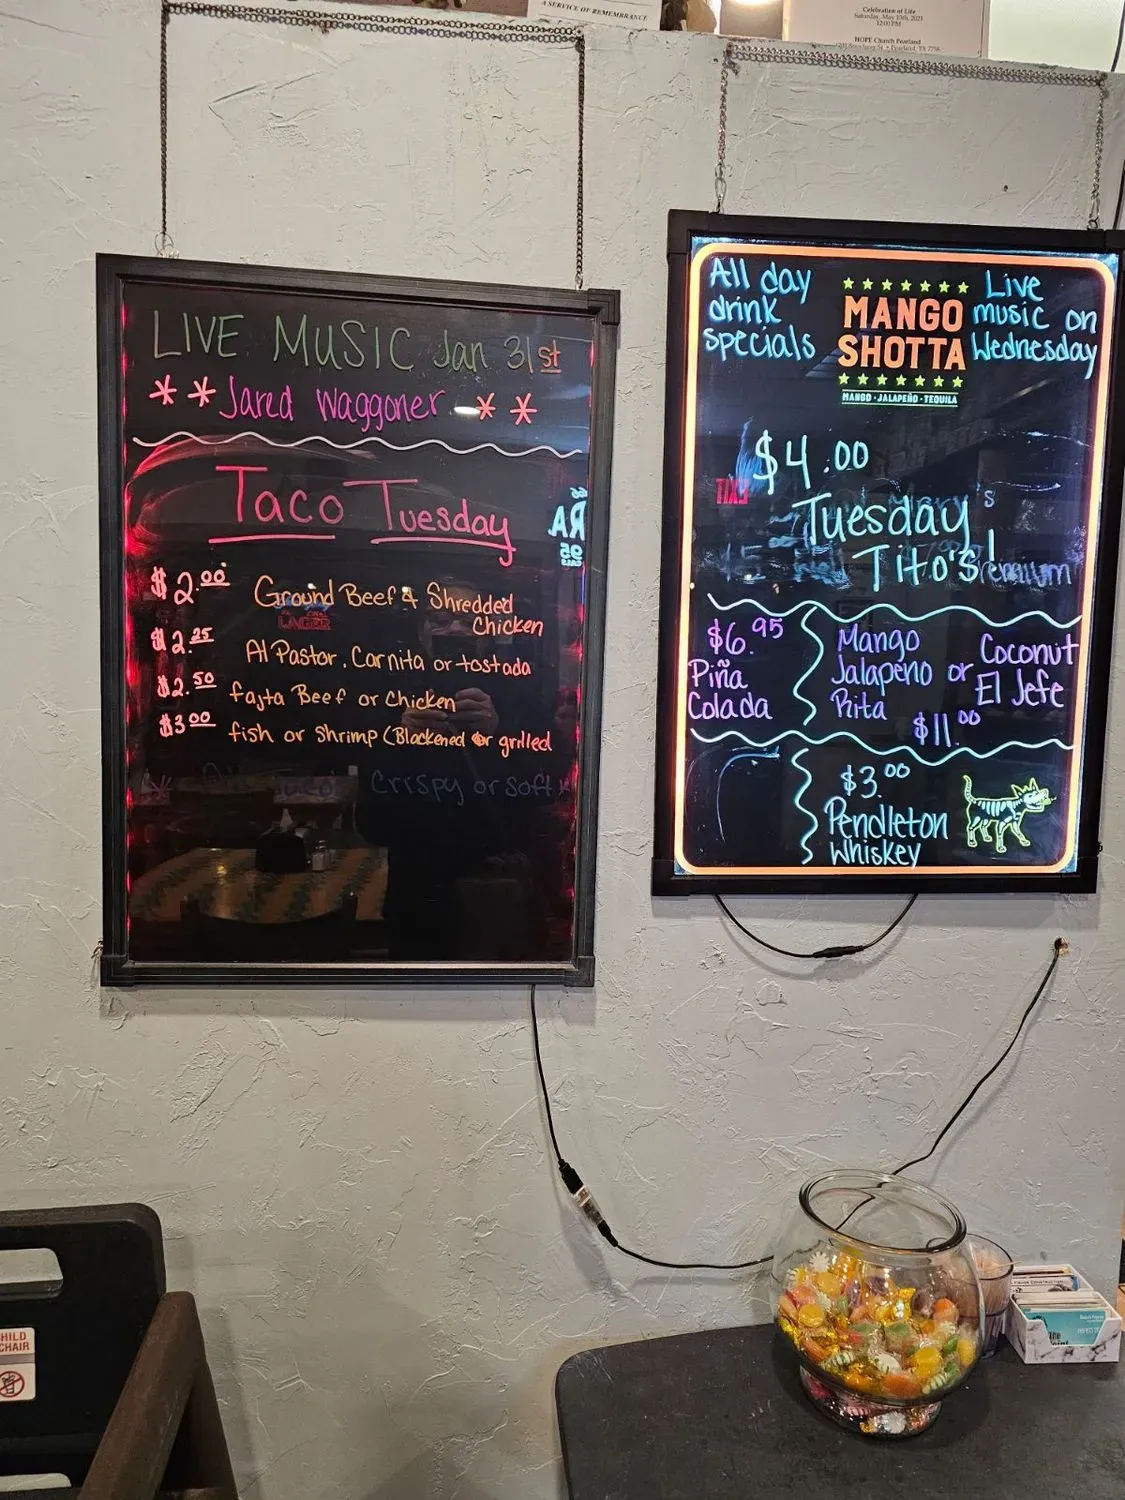 A SERVICE OF REMEMBRANCE
Celebration of Life
Saturday, May 13th, 2023
12:00 PM
HOPE Church Pearland
LIVE MUSIC Jan 31st
**Jared Waggoner**
Taco Tuesday
$2.00 Ground Beef & Shredded
Chicken
$2.25 Al Pastor, Carnita or tostada
$2.50 fajta Beef or Chicken
$3.00 fish or Shrimp (Blackened or grilled
Crispy or soft
All day
drink
specials
MANGO
SHOTTA
MANGO · JALAPEÑO · TEQUILA
Live
music on
Wednesday
$4.00
Tuesday's
Tito's!
$6.95
Piña
Colada
Mango
Jalapeno or
Rita
Coconut
El Jefe
$11.00
$3.00
Pendleton
Whiskey
CHILD
CHAIR
The